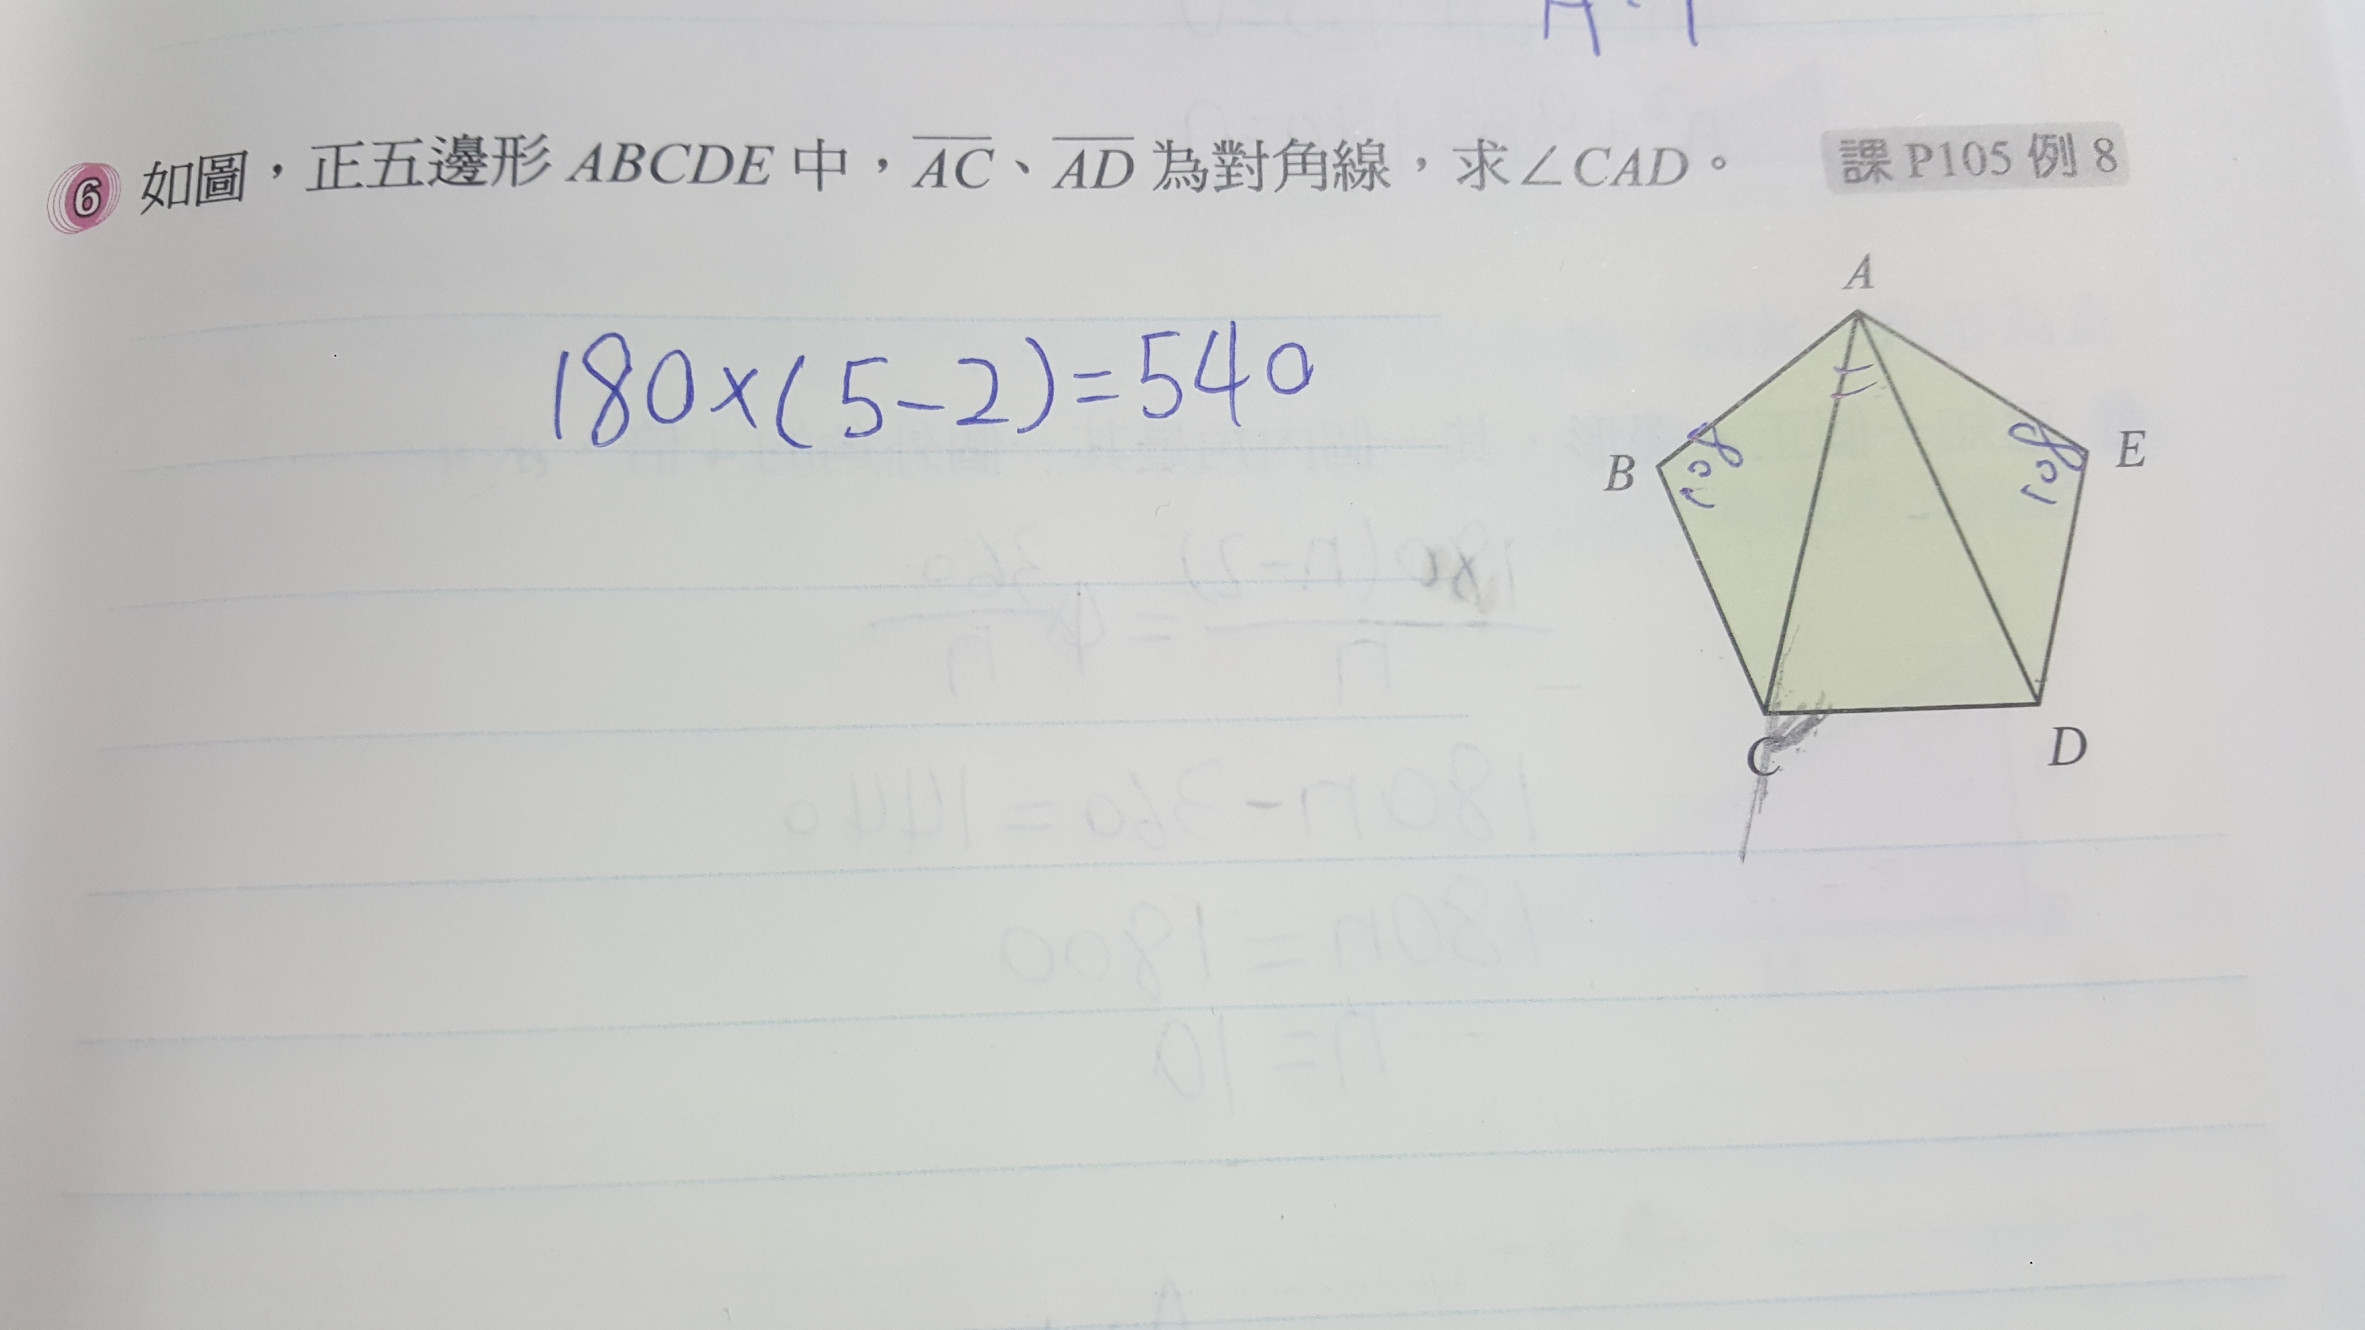 6 如圖，正五邊形 ABCDE 中，AC、AD 為對角線，求∠CAD。 課 P105 例 8
180×(5-2)=540
A
B
108
108
E
C
D